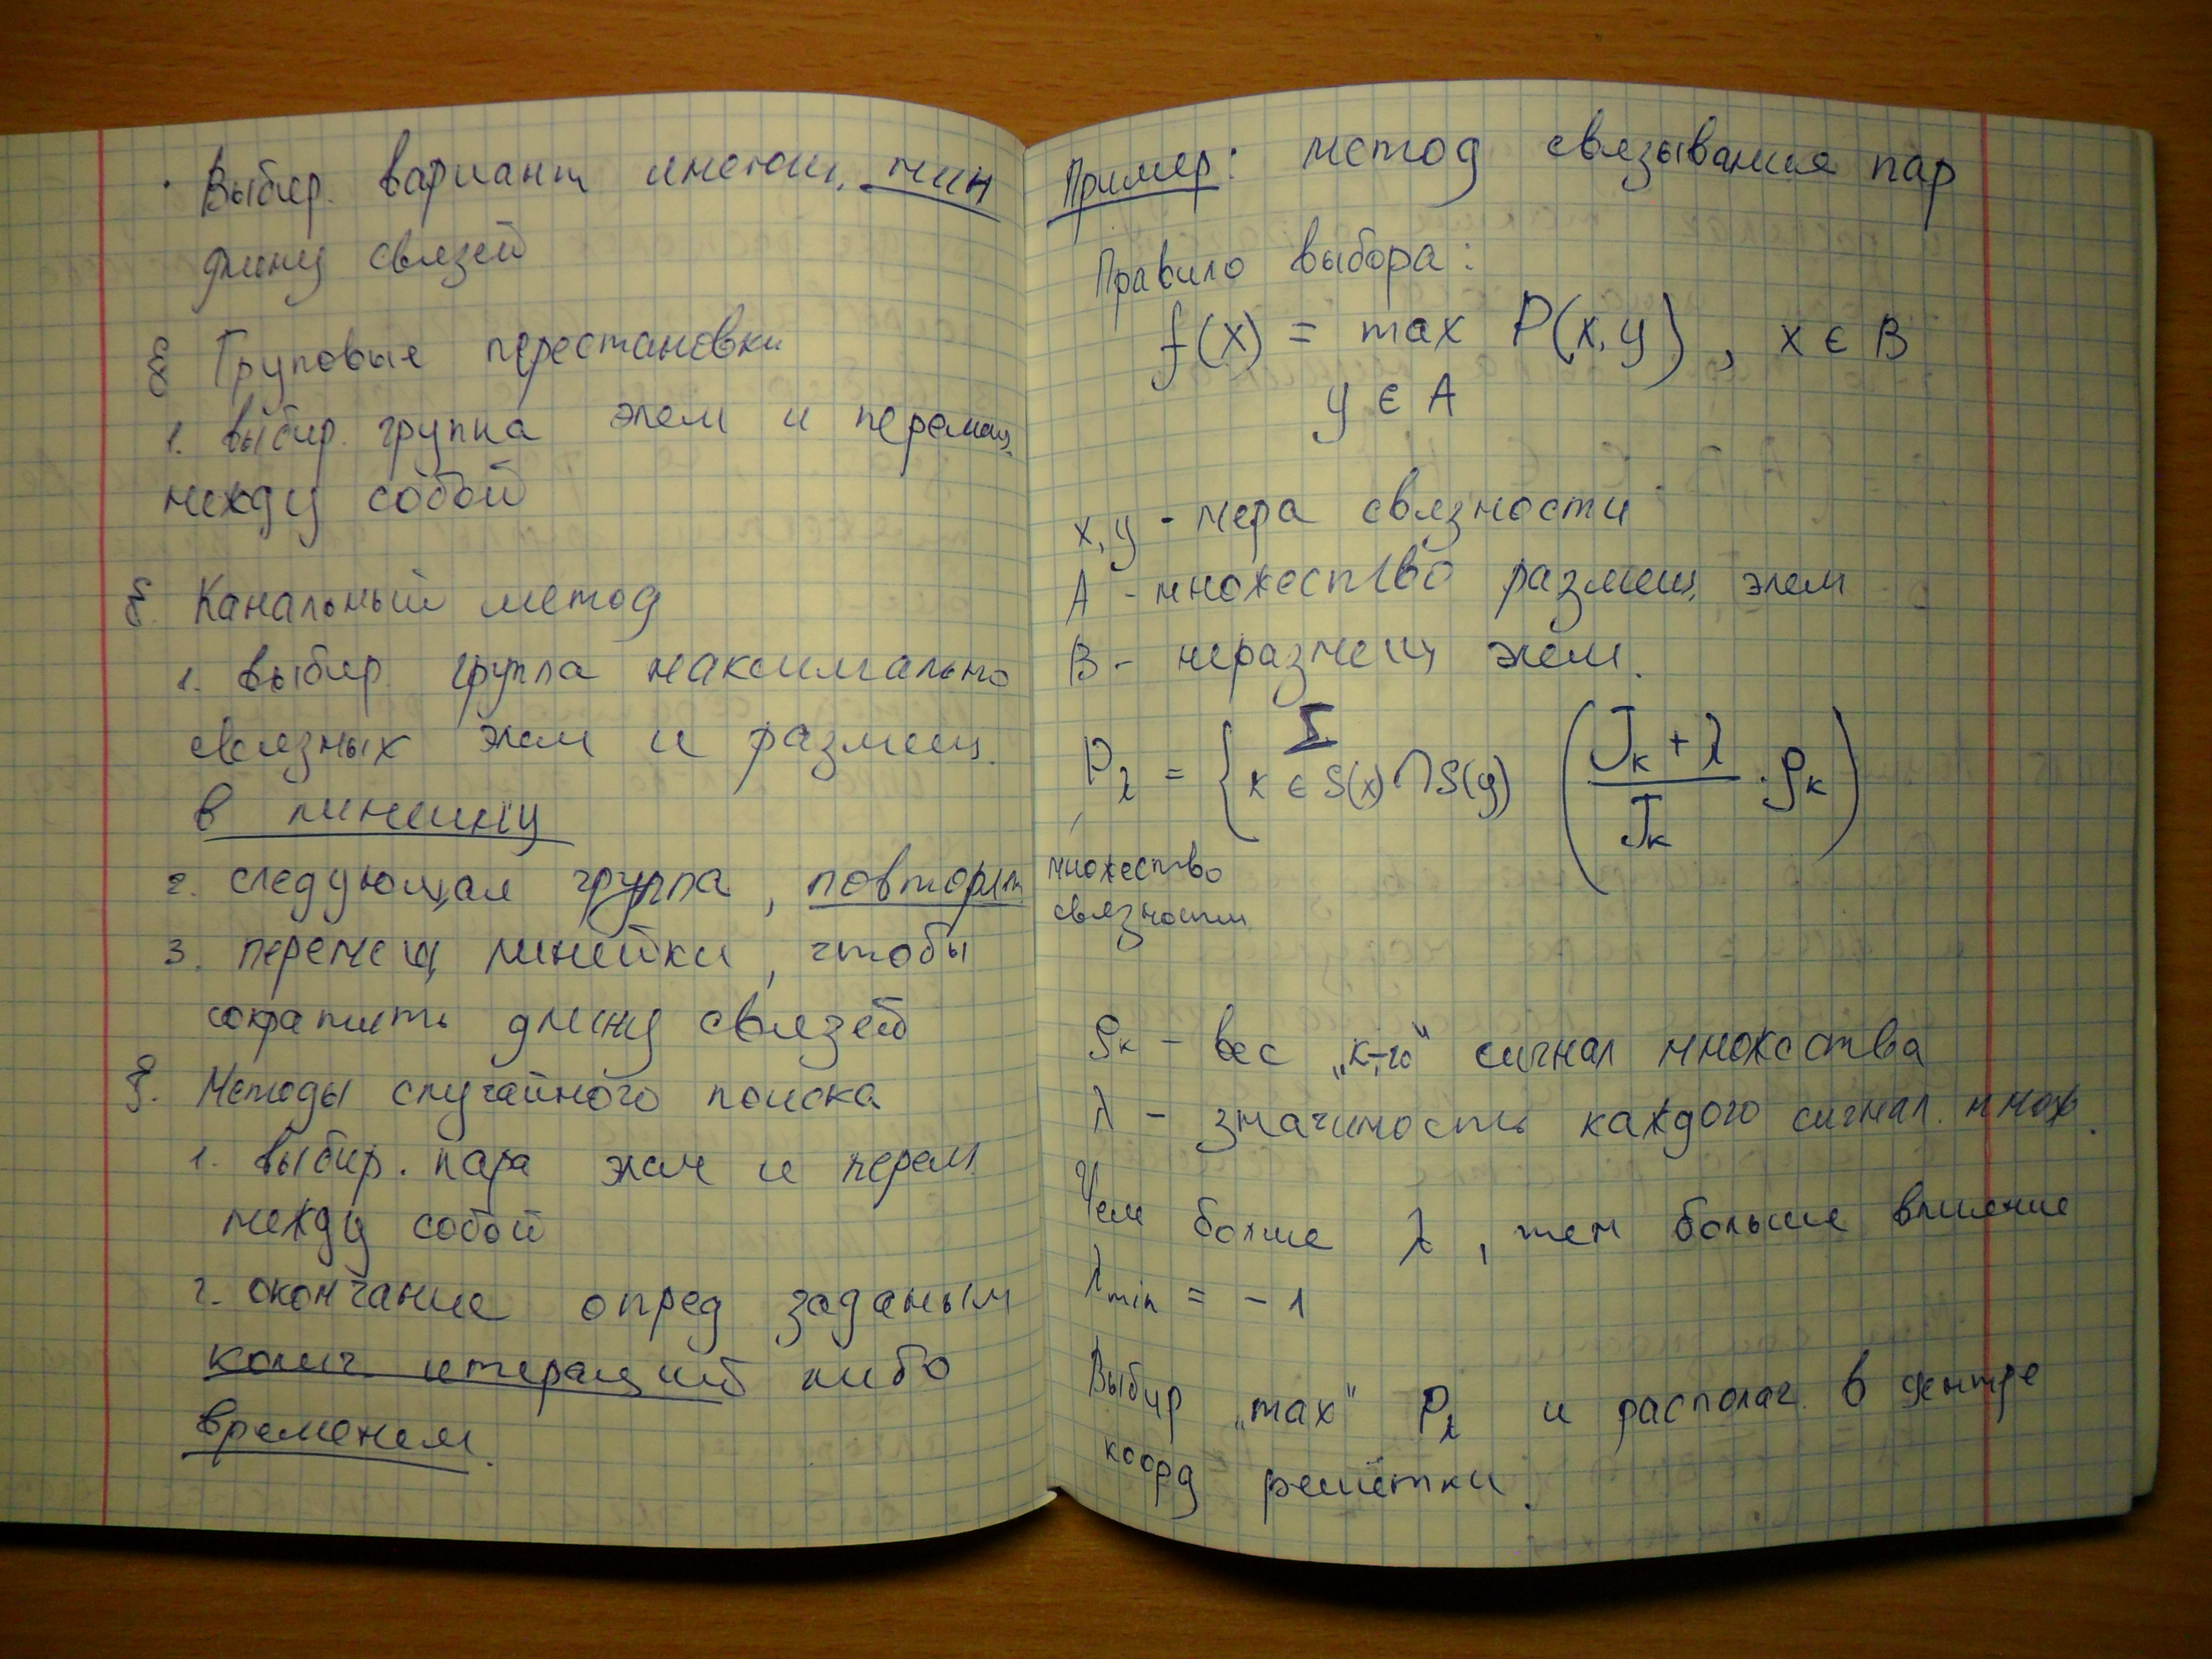 · Выбир. вариант имеющ. мин
длину связей
§ Груповые перестановки
1. выбир. группа элем и перемещ.
между собой
§. Канальный метод
1. выбир. группа максимально
связных элем и размещ.
в линейку
2. следующая группа, повторят
3. перемещ линейки, чтобы
сократить длину связей
§. Методы случайного поиска
1. выбир. пара элем и перем
между собой
2. окончание опред заданым
колич итераций либо
временем.
Пример: метод связывания пар
Правило выбора:
f(x) = max P(x,y), x ∈ B
y ∈ A
x,y - мера связности
A - множество размещ. элем
B - неразмещ элем.
P_λ = { Σ k ∈ S(x)∩S(y) ( (J_k + λ) / J_k · ρ_k )
множество
связности
ρ_k - вес „к-го" сигнал множества
λ - значимость каждого сигнал. множ.
Чем болше λ, тем больше влияние
λ_min = -1
Выбир „max" P_λ и располаг. в центре
коорд решётки.